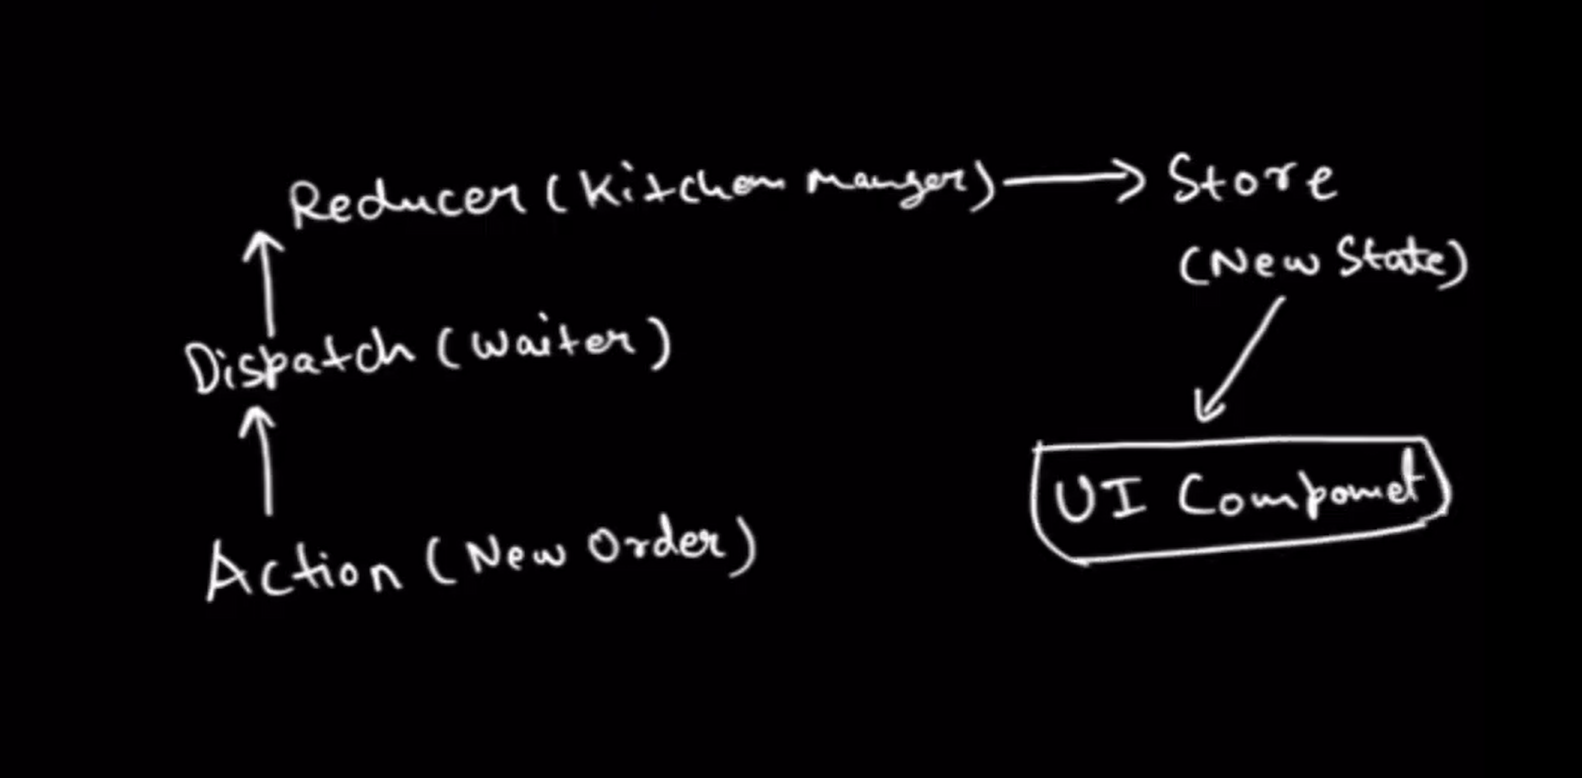 Reducer (Kitchen Manger) Store
(New State)
Dispatch (Waiter)
UI Componet
Action (New Order)